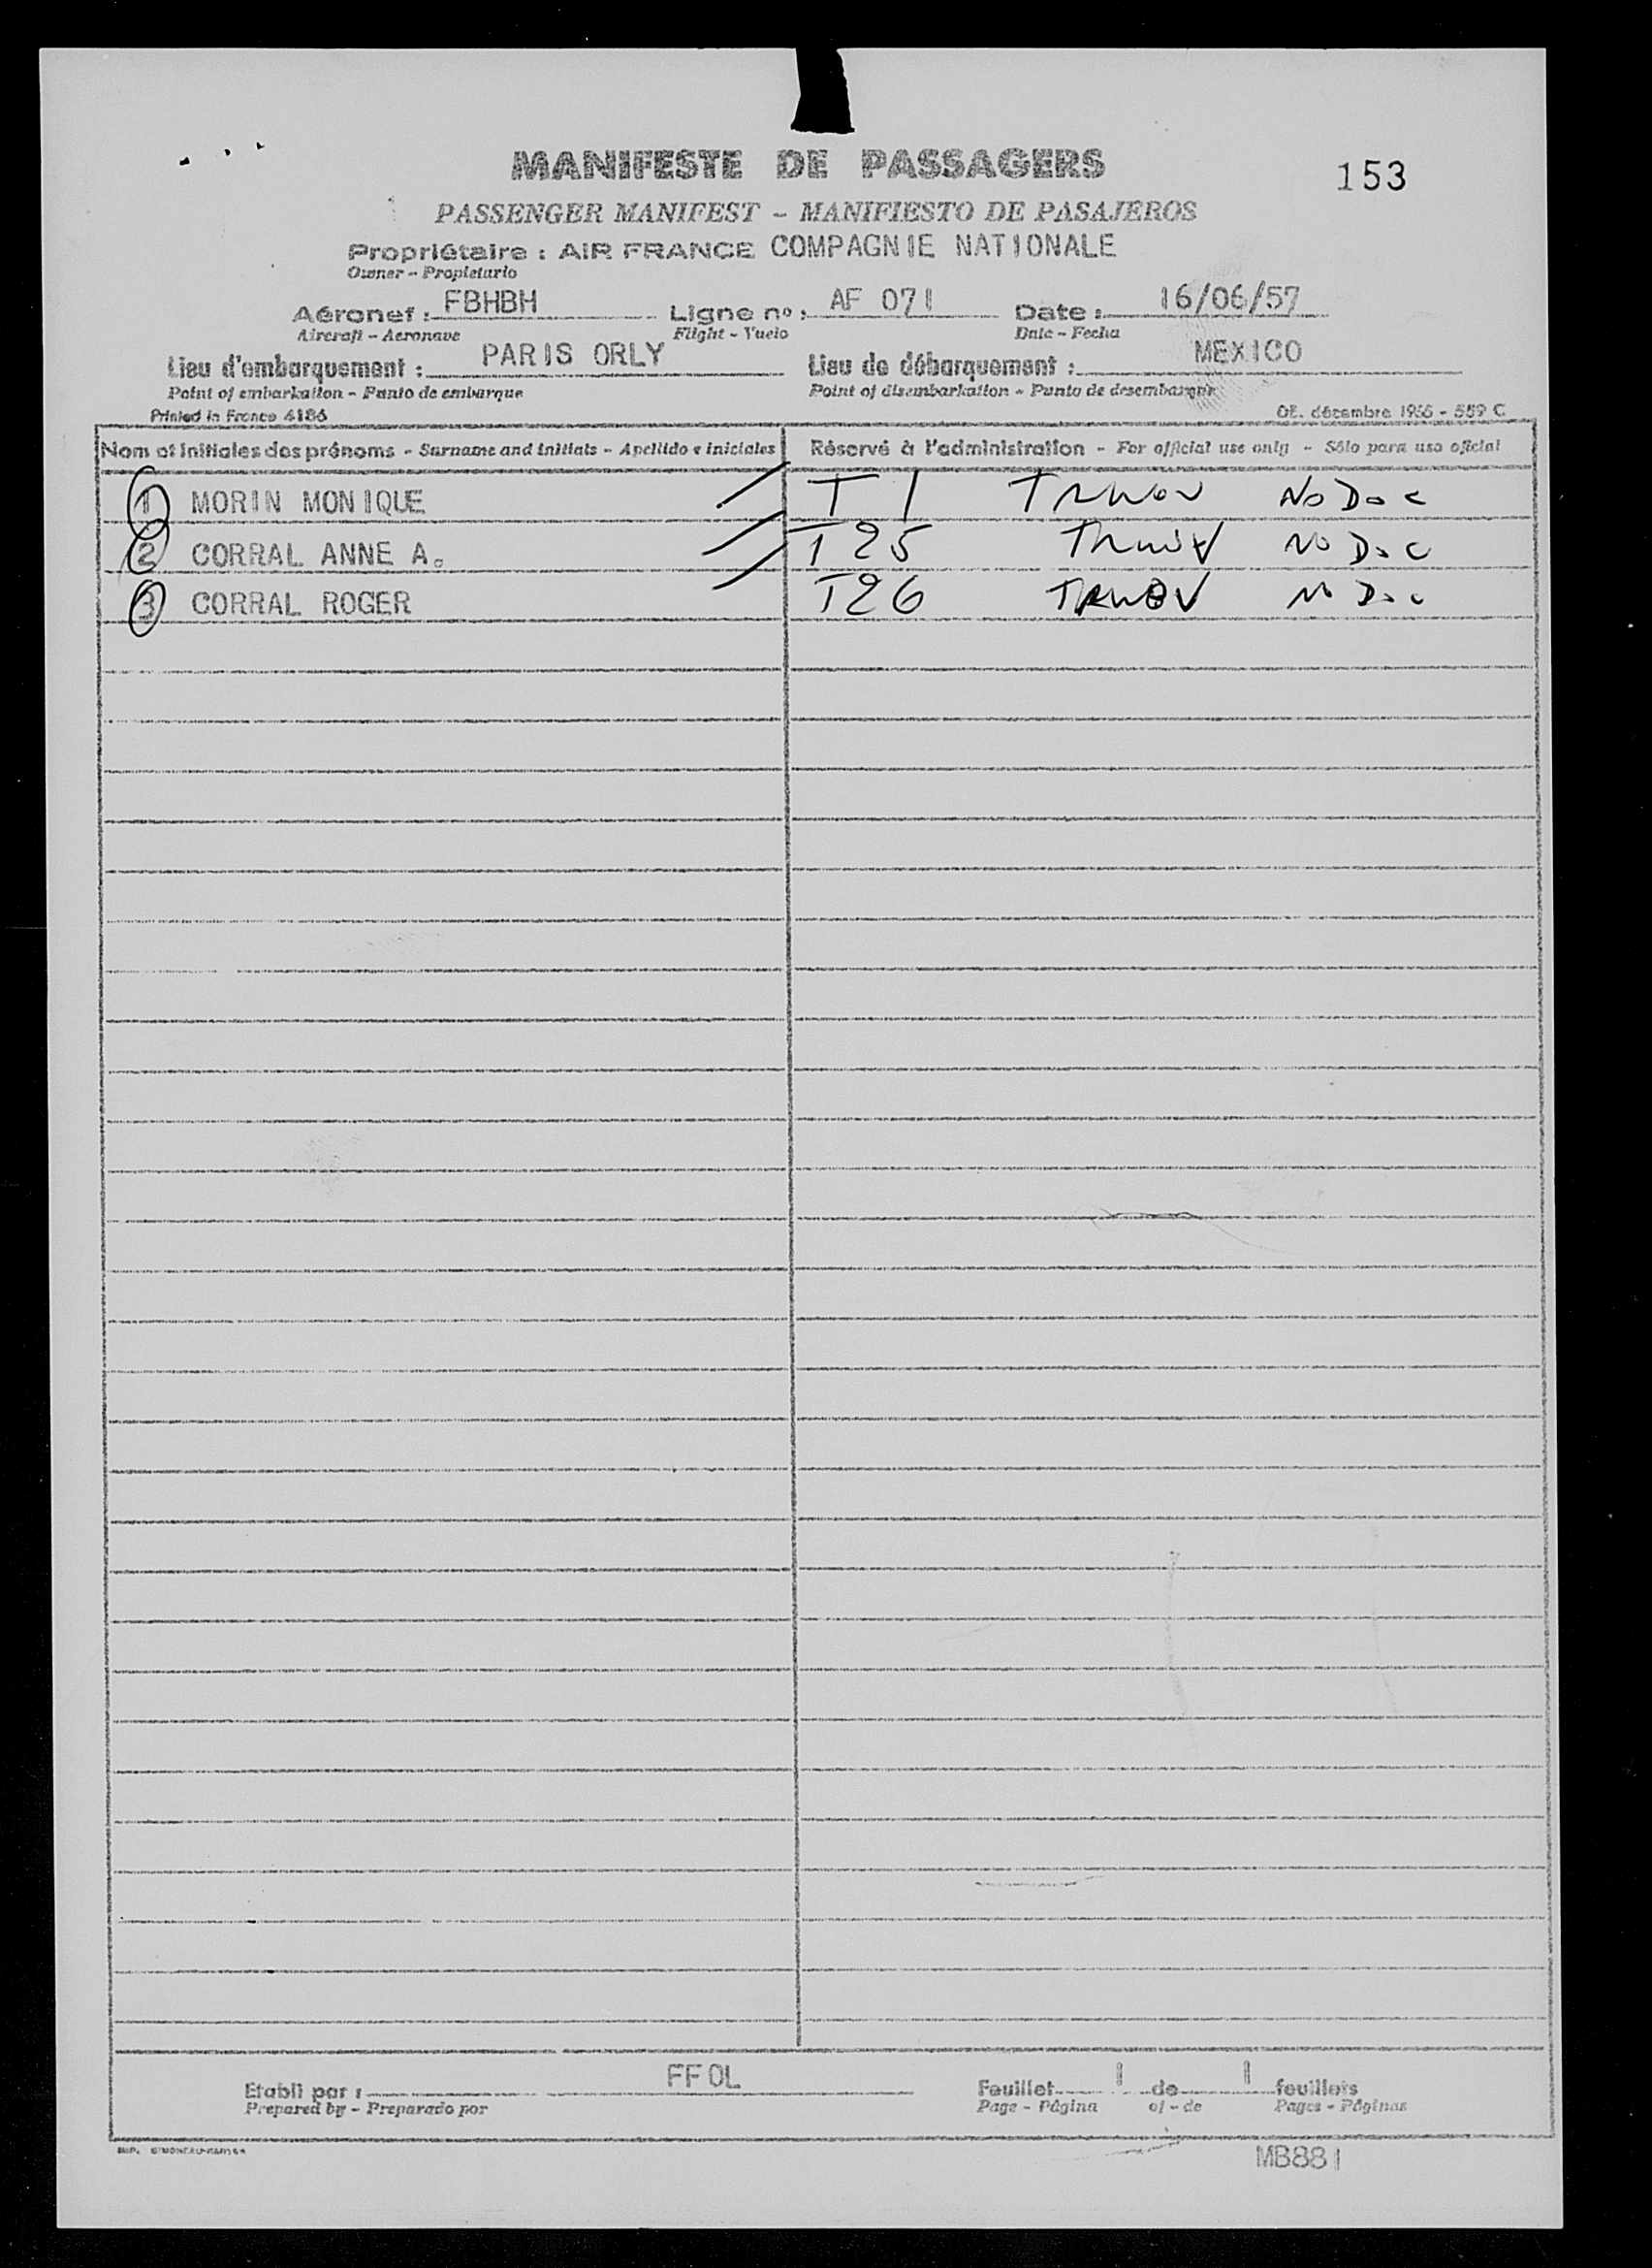 MANIFESTE DE PASSAGERS
153
PASSENGER MANIFEST - MANIFIESTO DE PASAJEROS
Propriétaire : AIR FRANCE COMPAGNIE NATIONALE
Owner - Propietario
Aéronef : FBHBH Ligne nº : AF 071 Date : 16/06/57
Aircraft - Aeronave Flight - Vuelo Date - Fecha
Lieu d'embarquement : PARIS ORLY Lieu de débarquement : MEXICO
Point of embarkation - Punto de embarque Point of disembarkation - Punto de desembarque
Printed in France 4186 OE. décembre 1956 - 559 C
Nom et initiales des prénoms - Surname and initials - Apellido e iniciales Réservé à l'administration - For official use only - Sólo para uso oficial
1 MORIN MONIQUE T 1 No Doc
2 CORRAL ANNE A. T 25 No Doc
3 CORRAL ROGER T26 No Doc
Etabli par : FFOL Feuillet 1 de 1 feuillets
Prepared by - Preparado por Page - Página of - de Pages - Páginas
MB881